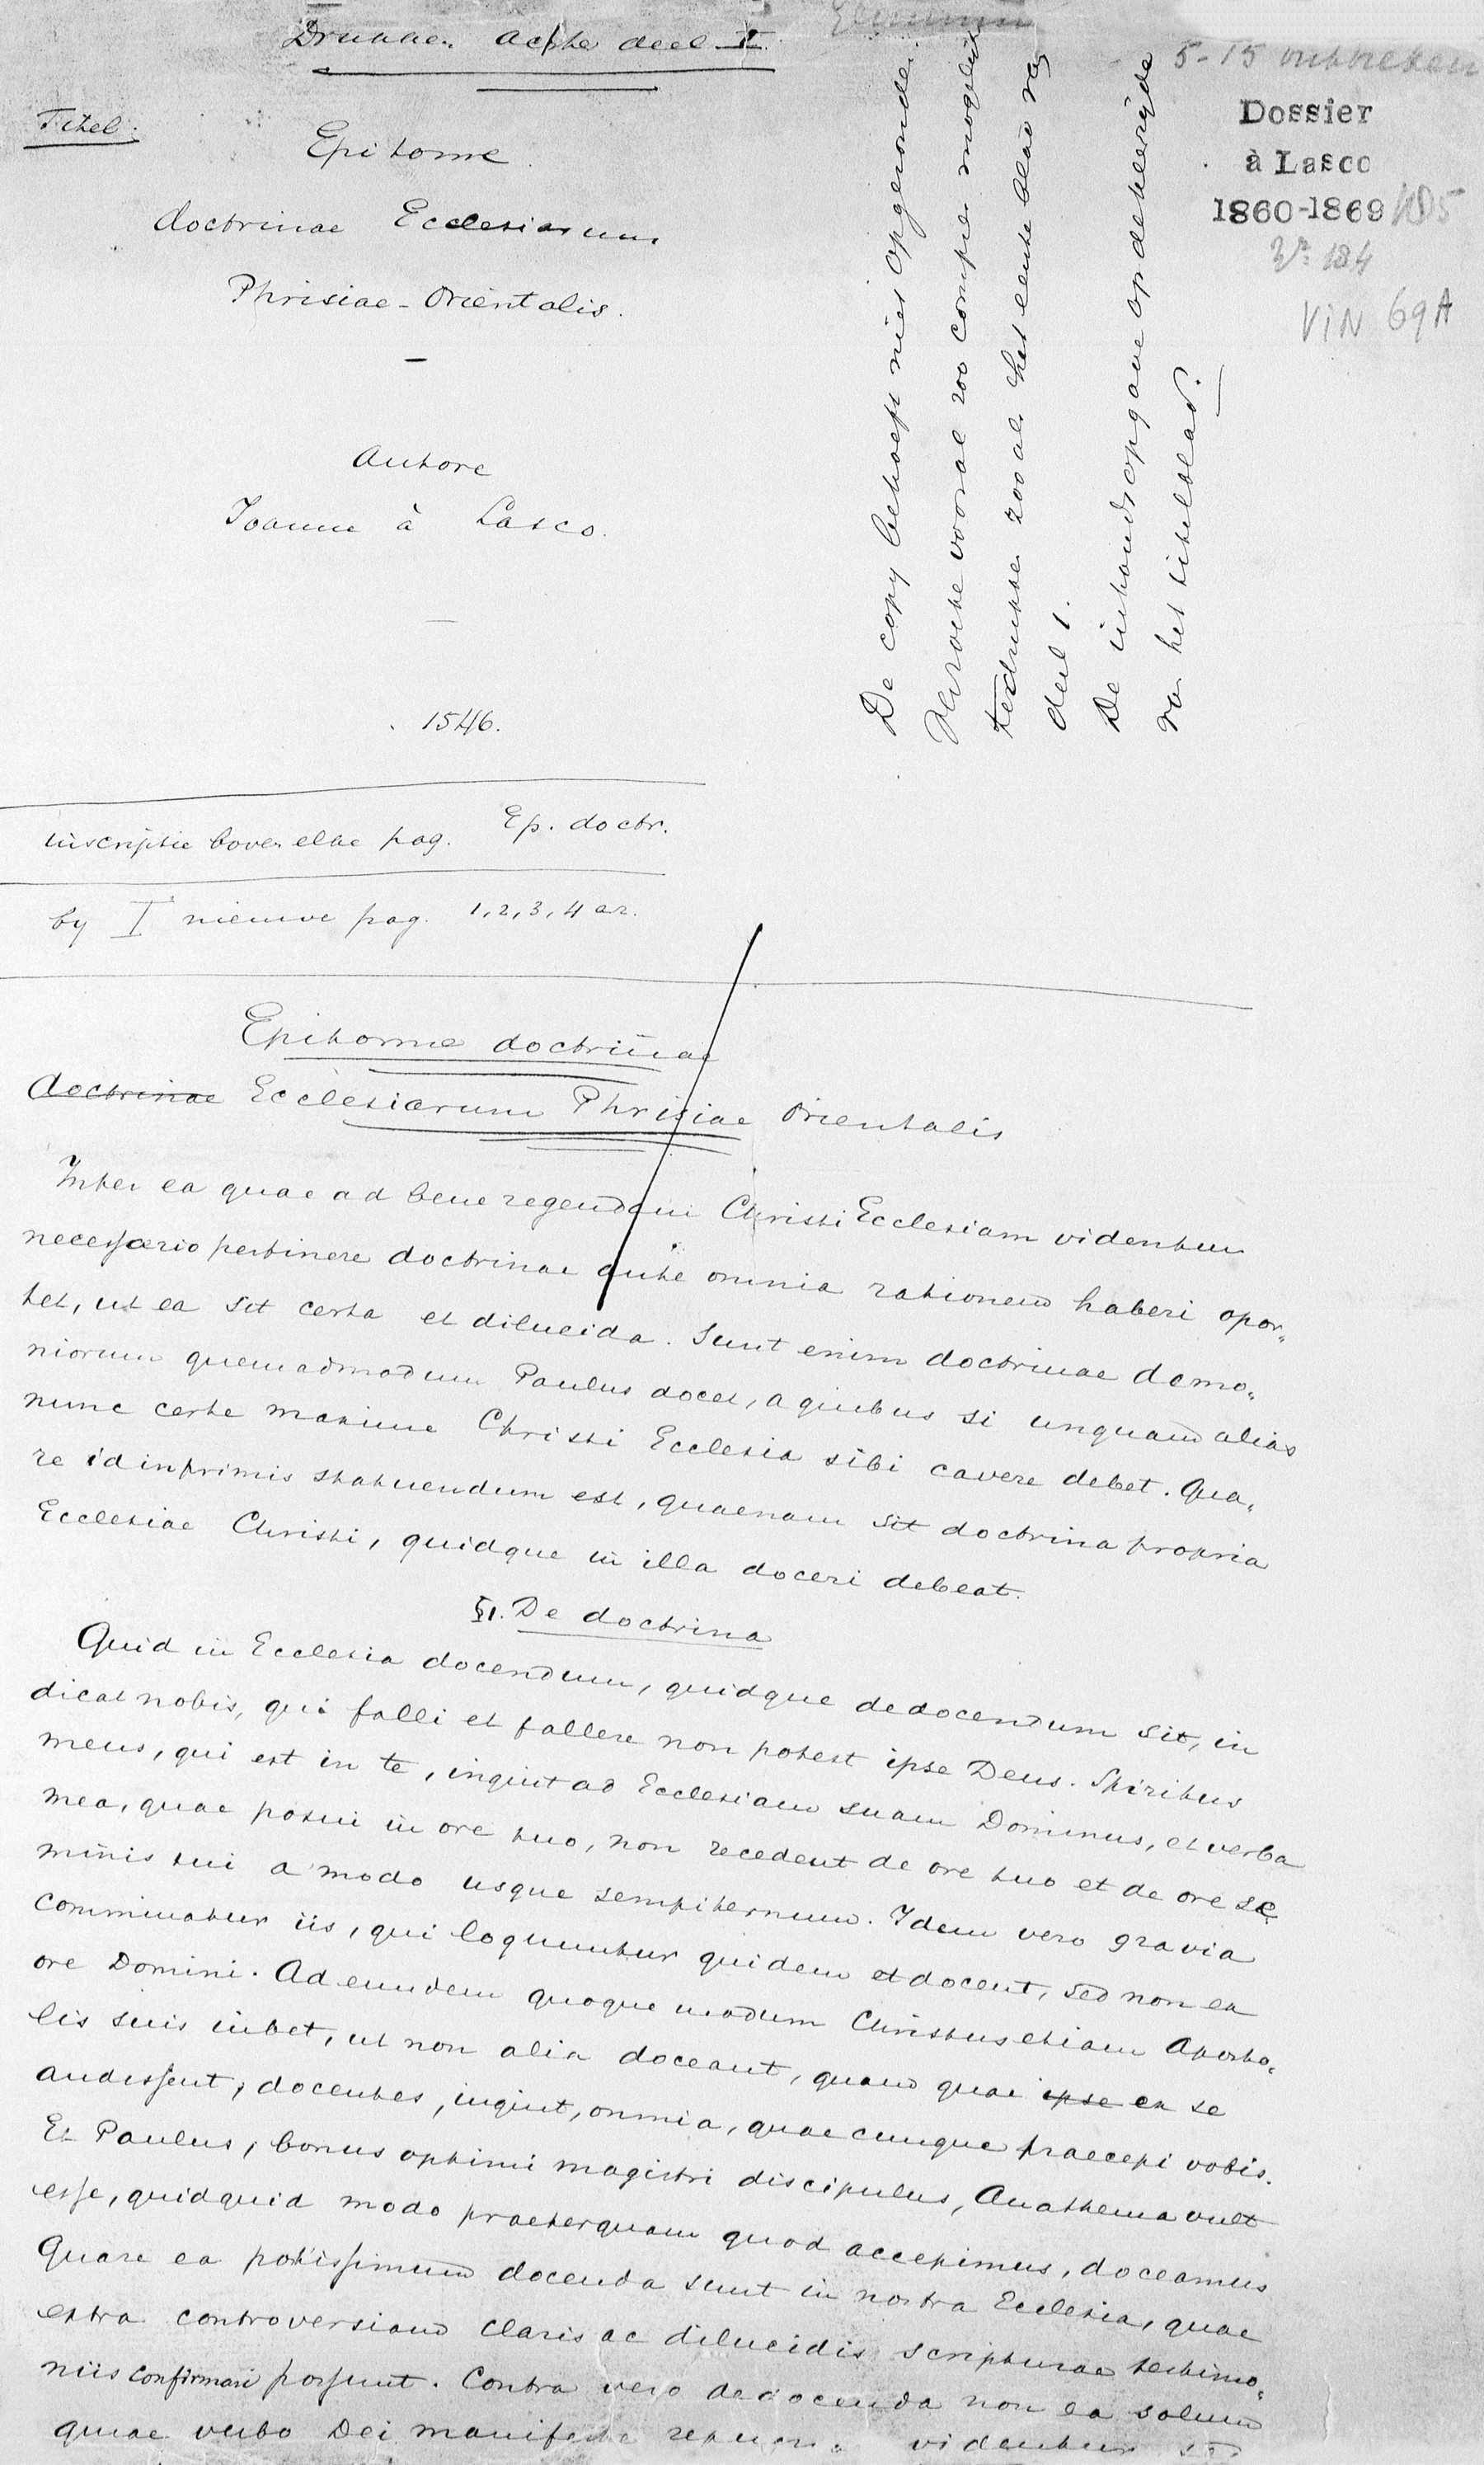 Drukken achter deel I.
5-15 ontbreken
Dossier
à Lasco
1860-1869
No 184
VIN 69A
Titel:
Epitome
doctrinae Ecclesiarum
Phrisiae-Orientalis.
Autore
Joanne à Lasco.
1546.
De copy behoeft niet opgezonden
vooral zoo compres mogelijk
te drukken zooals het eerste blad van
deel 1.
De inhoudsopgave op de keerzijde
van het titelblad.
inscriptie boven elke pag. Ep. doctr.
by I nieuwe pag. 1, 2, 3, 4 enz.
Epitome doctrinae
doctrinae Ecclesiarum Phrisiae Orientalis
Inter ea quae ad bene regendam Christi Ecclesiam videntur
necessario pertinere doctrinae ante omnia rationem haberi opor-
tet, ut ea sit certa et dilucida. Sunt enim doctrinae demo-
niorum quemadmodum Paulus docet, a quibus si unquam alias
nunc certe maxime Christi Ecclesia sibi cavere debet. Qua-
re id inprimis statuendum est, quaenam sit doctrina propria
Ecclesiae Christi, quidque in illa doceri debeat.
§1. De doctrina
Quid in Ecclesia docendum, quidque dedocendum sit, in
dicat nobis, qui falli et fallere non potest ipse Deus. Spiritus
meus, qui est in te, inquit ad Ecclesiam suam Dominus, et verba
mea, quae posui in ore tuo, non recedent de ore tuo et de ore se
minis tui a modo usque sempiternum. Idem vero gravia
comminatur iis, qui loquuntur quidem et docent, sed non ex
ore Domini. Ad eundem quoque modum Christus etiam Aposto-
lis suis iubet, ut non alia doceant, quam quae ipse ex se
audissent, docentes, inquit, omnia, quaecunque praecepi vobis.
Et Paulus, bonus optimi magistri discipulus, Anathema vult
esse, quidquid modo praeterquam quod accepimus, doceamus
Quare ea potissimum docenda sunt in nostra Ecclesia, quae
extra controversiam claris ac dilucidis scripturae testimo-
niis confirmari possunt. Contra vero dedocenda non ea solum
quae verbo Dei manifeste videntur